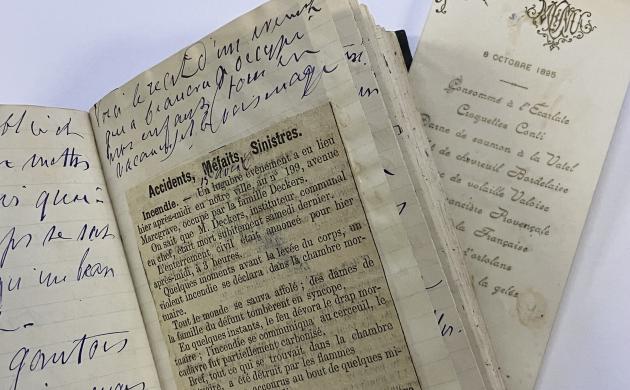 Voici le récit d'un événement
qui a beaucoup occupé
nos enfants tous en
vacances à Everswaag
Accidents, Méfaits, Sinistres.
Incendie. — Un lugubre événement a eu lieu
hier après-midi en notre ville, au n° 199, avenue
Margrave, occupé par la famille Deckers.
On sait que M. Deckers, instituteur communal
en chef, était mort subitement samedi dernier.
L'enterrement civil était annoncé pour hier
après-midi, à 3 heures.
Quelques moments avant la levée du corps, un
violent incendie se déclara dans la chambre mor-
tuaire.
Tout le monde se sauva affolé; des dames de
la famille du défunt tombèrent en syncope.
En quelques instants, le feu dévora le drap mor-
tuaire; l'incendie se communiqua au cercueil, le
cadavre fut partiellement carbonisé.
Bref, tout ce qui se trouvait dans la chambre
mortuaire, a été détruit par les flammes
accourus au bout de quelques mi-
mettre
quoi
se
un beau
MENU
8 OCTOBRE 1895
Consommé à l'Ecarlate
Croquettes Conti
Darne de saumon à la Vatel
de chevreuil Bordelaise
de volaille Valoise
Provençale
la Française
Ortolans
la gelée